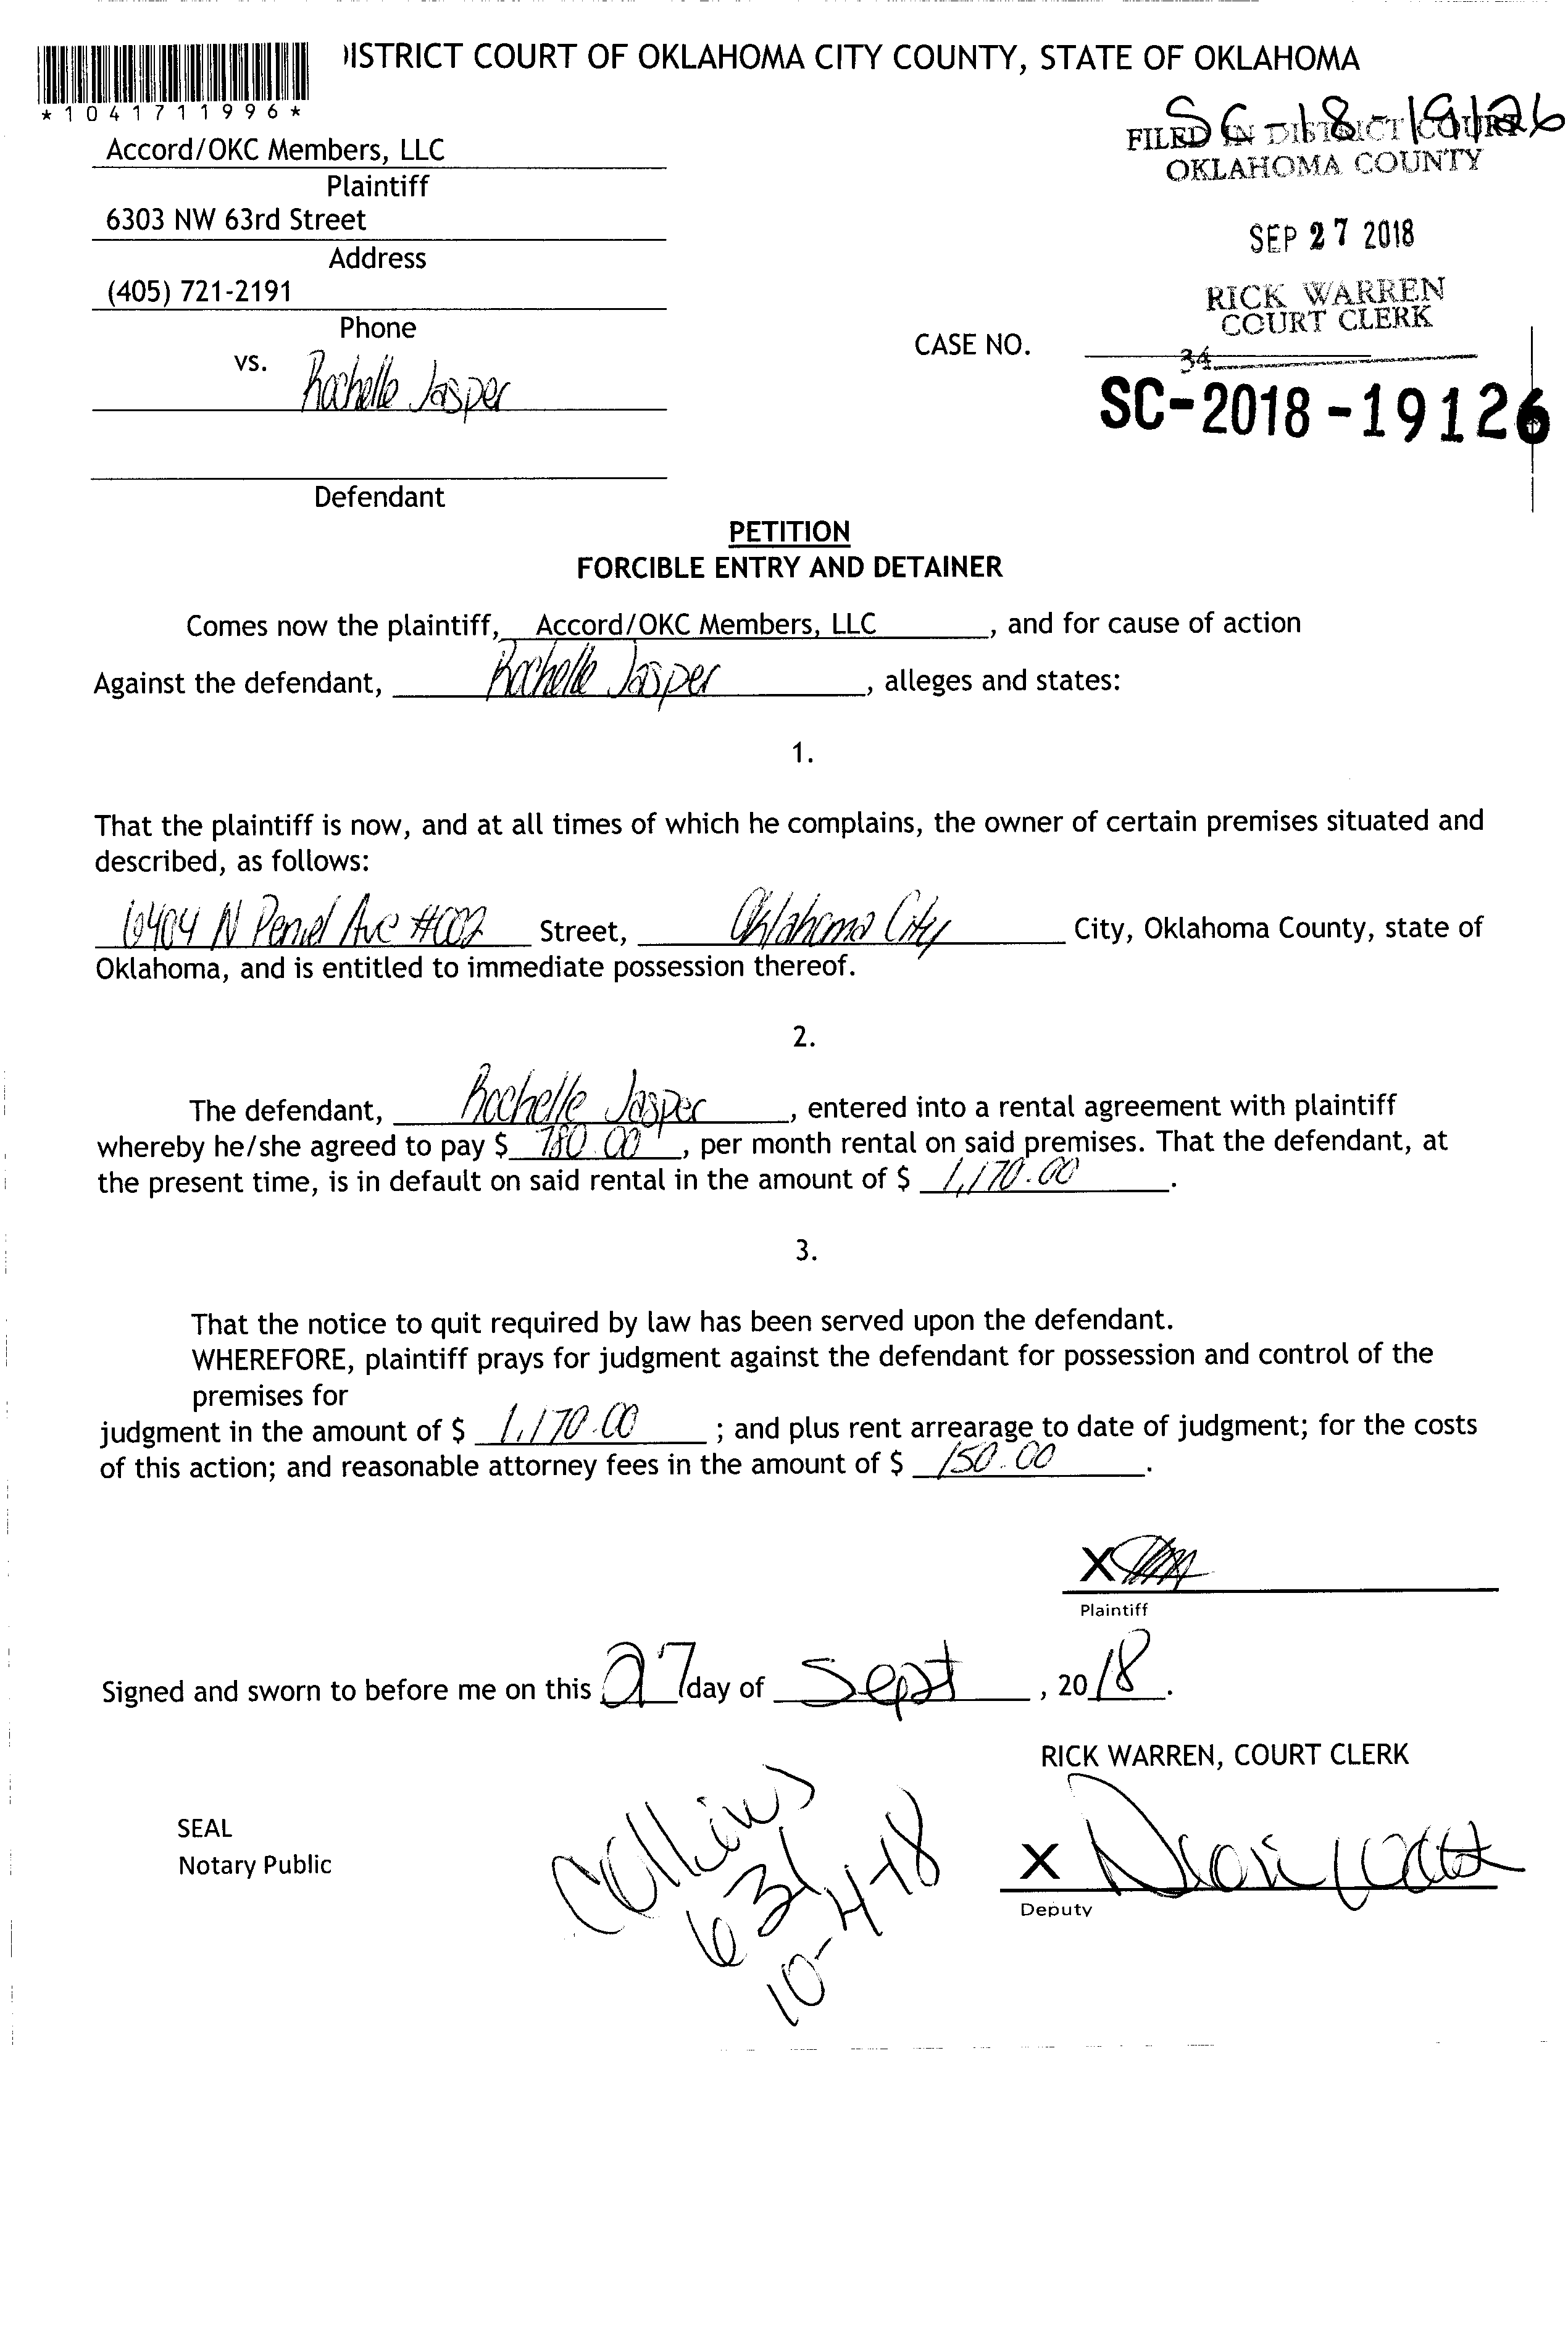 ISTRICT COURT OF OKLAHOMA CITY COUNTY, STATE OF OKLAHOMA
*1041711996*
SC-18-19126
FILED IN DISTRICT COURT
OKLAHOMA COUNTY
Accord/OKC Members, LLC
Plaintiff
6303 NW 63rd Street
Address
(405) 721-2191
Phone
SEP 27 2018
RICK WARREN
COURT CLERK
CASE NO.
34
SC-2018-19126
vs.
Rochelle Jasper
Defendant
PETITION
FORCIBLE ENTRY AND DETAINER
Comes now the plaintiff, Accord/OKC Members, LLC, and for cause of action
Against the defendant, Rochelle Jasper, alleges and states:
1.
That the plaintiff is now, and at all times of which he complains, the owner of certain premises situated and
described, as follows:
6404 N Peniel Ave #002 Street, Oklahoma City City, Oklahoma County, state of
Oklahoma, and is entitled to immediate possession thereof.
2.
The defendant, Rochelle Jasper, entered into a rental agreement with plaintiff
whereby he/she agreed to pay $ 780.00, per month rental on said premises. That the defendant, at
the present time, is in default on said rental in the amount of $ 1,170.00.
3.
That the notice to quit required by law has been served upon the defendant.
WHEREFORE, plaintiff prays for judgment against the defendant for possession and control of the
premises for
judgment in the amount of $ 1,170.00 ; and plus rent arrearage to date of judgment; for the costs
of this action; and reasonable attorney fees in the amount of $ 150.00.
X
Plaintiff
Signed and sworn to before me on this 27 day of Sept, 2018.
RICK WARREN, COURT CLERK
SEAL
Notary Public
Collins
631
10-4-18
X
Deputy